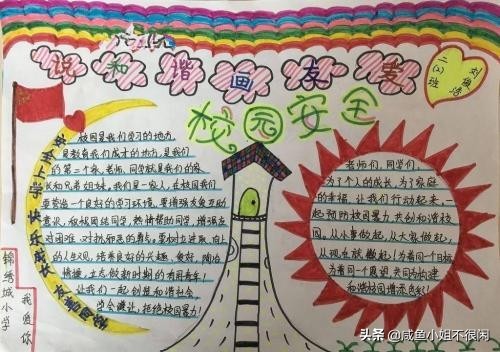 说和谐画友善
二(2)班
刘俊浩
校园安全
安全上学 快乐成长
校园是我们学习的地方,
是教育我们成才的地方,是我们
的第二个家,老师、同学就是我们的家
长和兄弟姐妹,我们是一家人,在校园我们
要营造一个良好的学习环境,要增强友爱互助
意识,和校园结同学,热情帮助同学,增强应
对困难、对抗邪恶的勇气,要树立进取、向上
的人生观,培养良好的兴趣、爱好、陶冶
情操,立志做新时期的有用青年!
让我们一起创建和谐社会
学会谦让,拒绝校园暴力!
老师们,同学们,
为了个人的成长,为了家庭
的幸福,让我们行动起来,一
起预防校园暴力,共创和谐校
园,从小事做起,从大家做起,
从现在就做起!为着同一个目标
为着同一个愿望,共同为构建
和谐校园增添色彩!
锦绣城小学
我爱你
头条 @咸鱼小姐不很闲